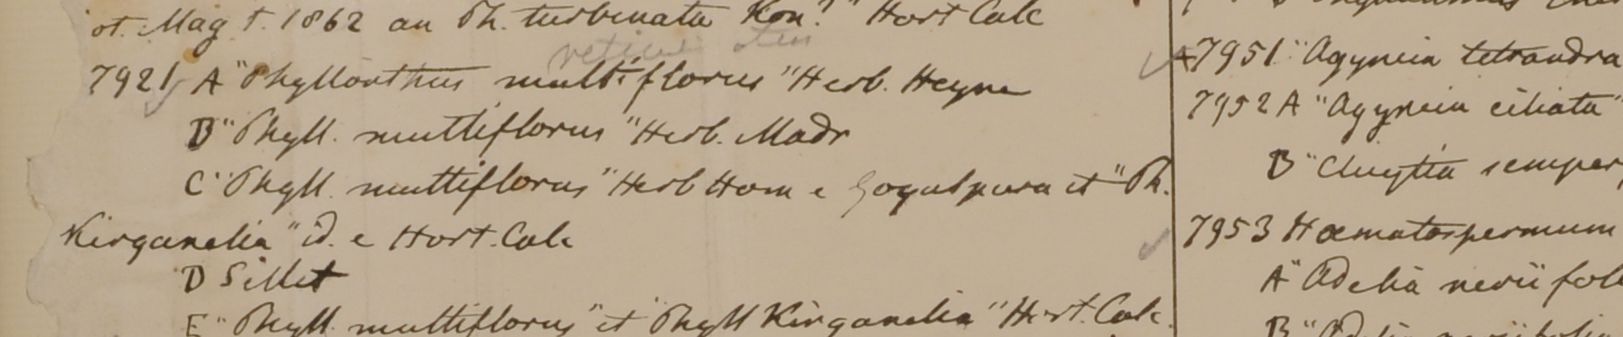 ot. Mag t. 1862 an Ph. turbinata Kon?" Hort Calc
7921 A "Phyllanthus multiflorus" Herb. Heyne
B "Phyll. multiflorus" Herb. Madr
C "Phyll. multiflorus" Herb Ham e Gogulpura et "Ph.
Kirganelia" id. e Hort. Calc
D Sillet
E "Phyll. multiflorus" et "Phyll Kirganelia" Hort. Calc.
7951 "Agyneia tetrandra
7952 A "Agyneia ciliata"
B "Cluytia semper
7953 Hæmatospermum
A "Adelia neriifol
B "Adelia neriifolia